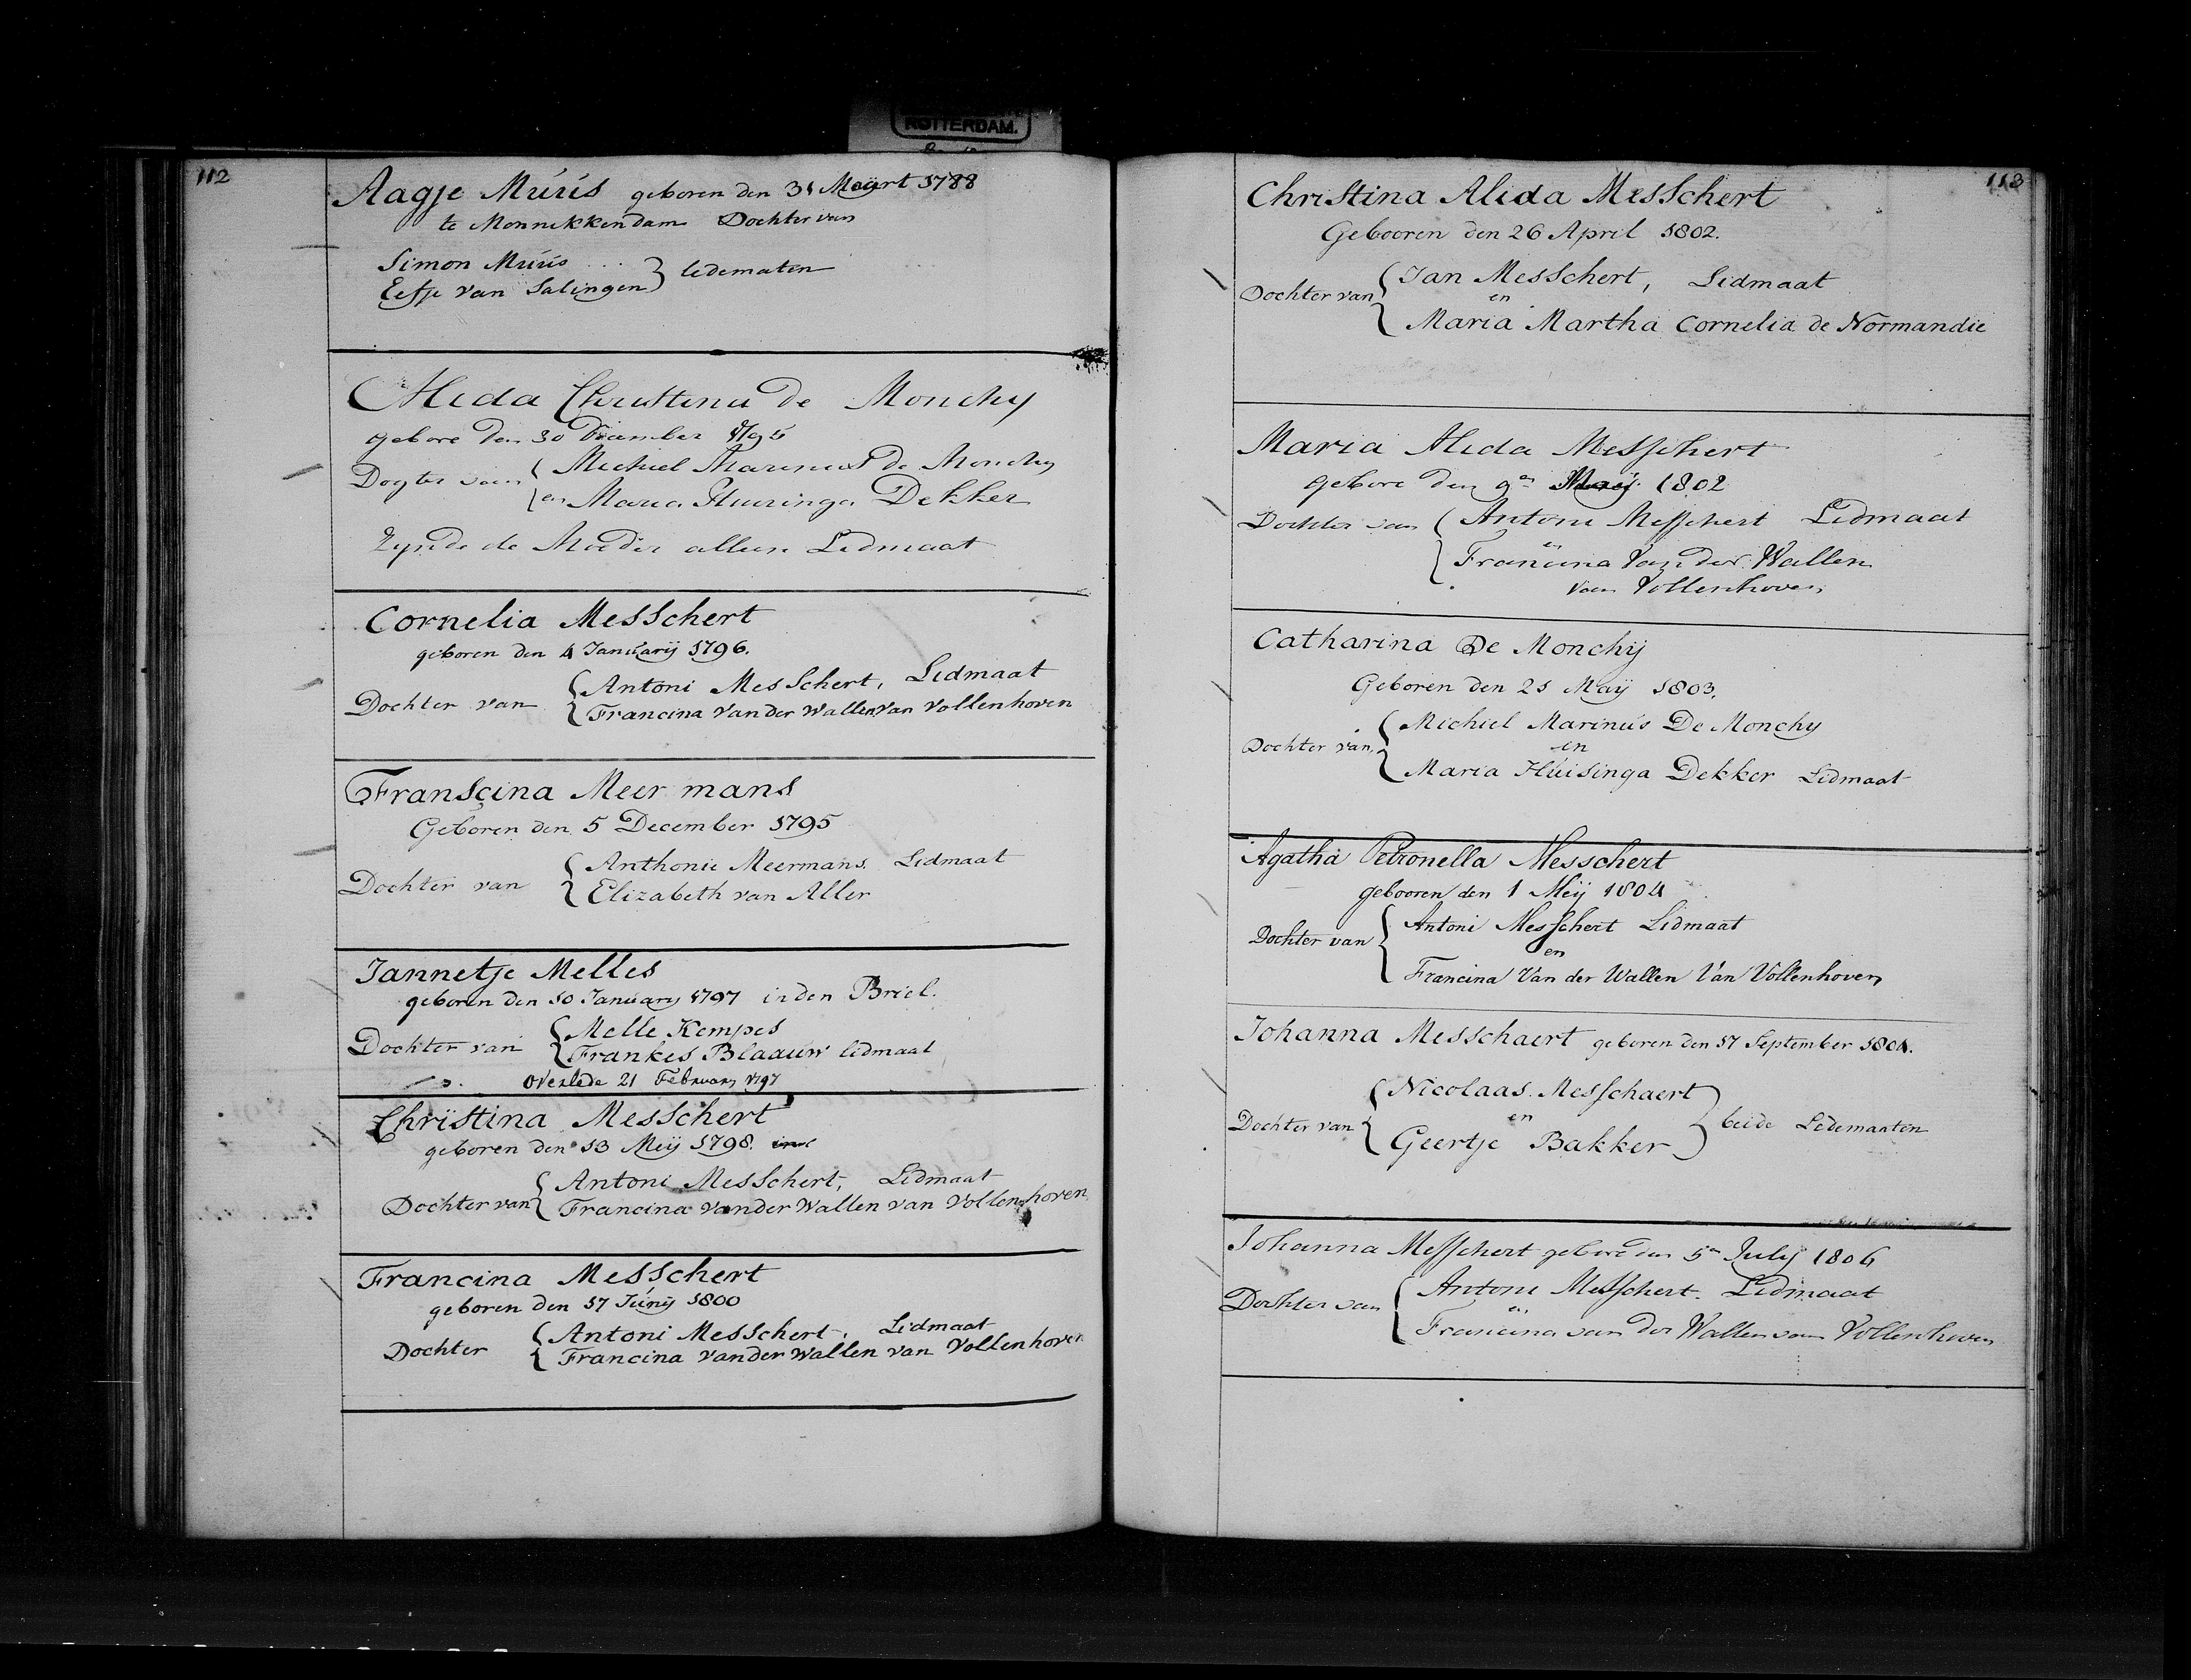 ROTTERDAM.
112
Aagje Muús geboren den 31 Maart 1788
te Monnikkendam Dochter van
Simon Muús
Eefje van Salingen } ledematen
Alida Christina de Monchy
gebore den 30 December 1795
Dogter van { Michiel Marinus de Monchy
en Maria Huisinga Dekker
Zynde de Moeder alleen Lidmaat
Cornelia Messchert
geboren den 4 Januarij 1796.
Dochter van { Antoni Messchert, Lidmaat
Francina van der Wallen van Vollenhoven
Franscina Meer mans
Geboren den 5 December 1795
Dochter van { Anthonie Meermans. Lidmaat
Elizabeth van Aller
Jannetje Melles
geboren den 10 January 1797 in den Briel.
Dochter van { Melle Kempes
Frankes Blaauw lidmaat
Overlede 21 February 1797
Christina Messchert
geboren den 13 Meij 1798.
Dochter van { Antoni Messchert, Lidmaat
Francina van der Wallen van Vollenhoven
Francina Messchert
geboren den 17 Junij 1800
Dochter { Antoni Messchert, Lidmaat
Francina van der Wallen van Vollenhoven
113
Christina Alida Messchert
Gebooren den 26 April 1802.
Dochter van { Jan Messchert, Lidmaat
en
Maria Martha Cornelia de Normandie
Maria Alida Messchert
gebore den 9en Maij 1802
Dochter van { Antoni Messchert Lidmaat
en
Francina Van der Wallen
van Vollenhoven
Catharina De Monchij
Geboren den 21 Maij 1803.
Dochter van { Michiel Marinús De Monchy
en
Maria Húisinga Dekker Lidmaat
Agatha Petronella Messchert
gebooren den 1 Meij 1804
Dochter van { Antoni Messchert Lidmaat
en
Francina Van der Wallen Van Vollenhoven
Johanna Messchaert geboren den 17 September 1804.
Dochter van { Nicolaas Messchaert
en
Geertje Bakker } beide Ledemaaten
Johanna Messchert gebore den 5en July 1806
Dochter van { Antoni Messchert. Lidmaat
en
Francina van der Wallen van Vollenhoven